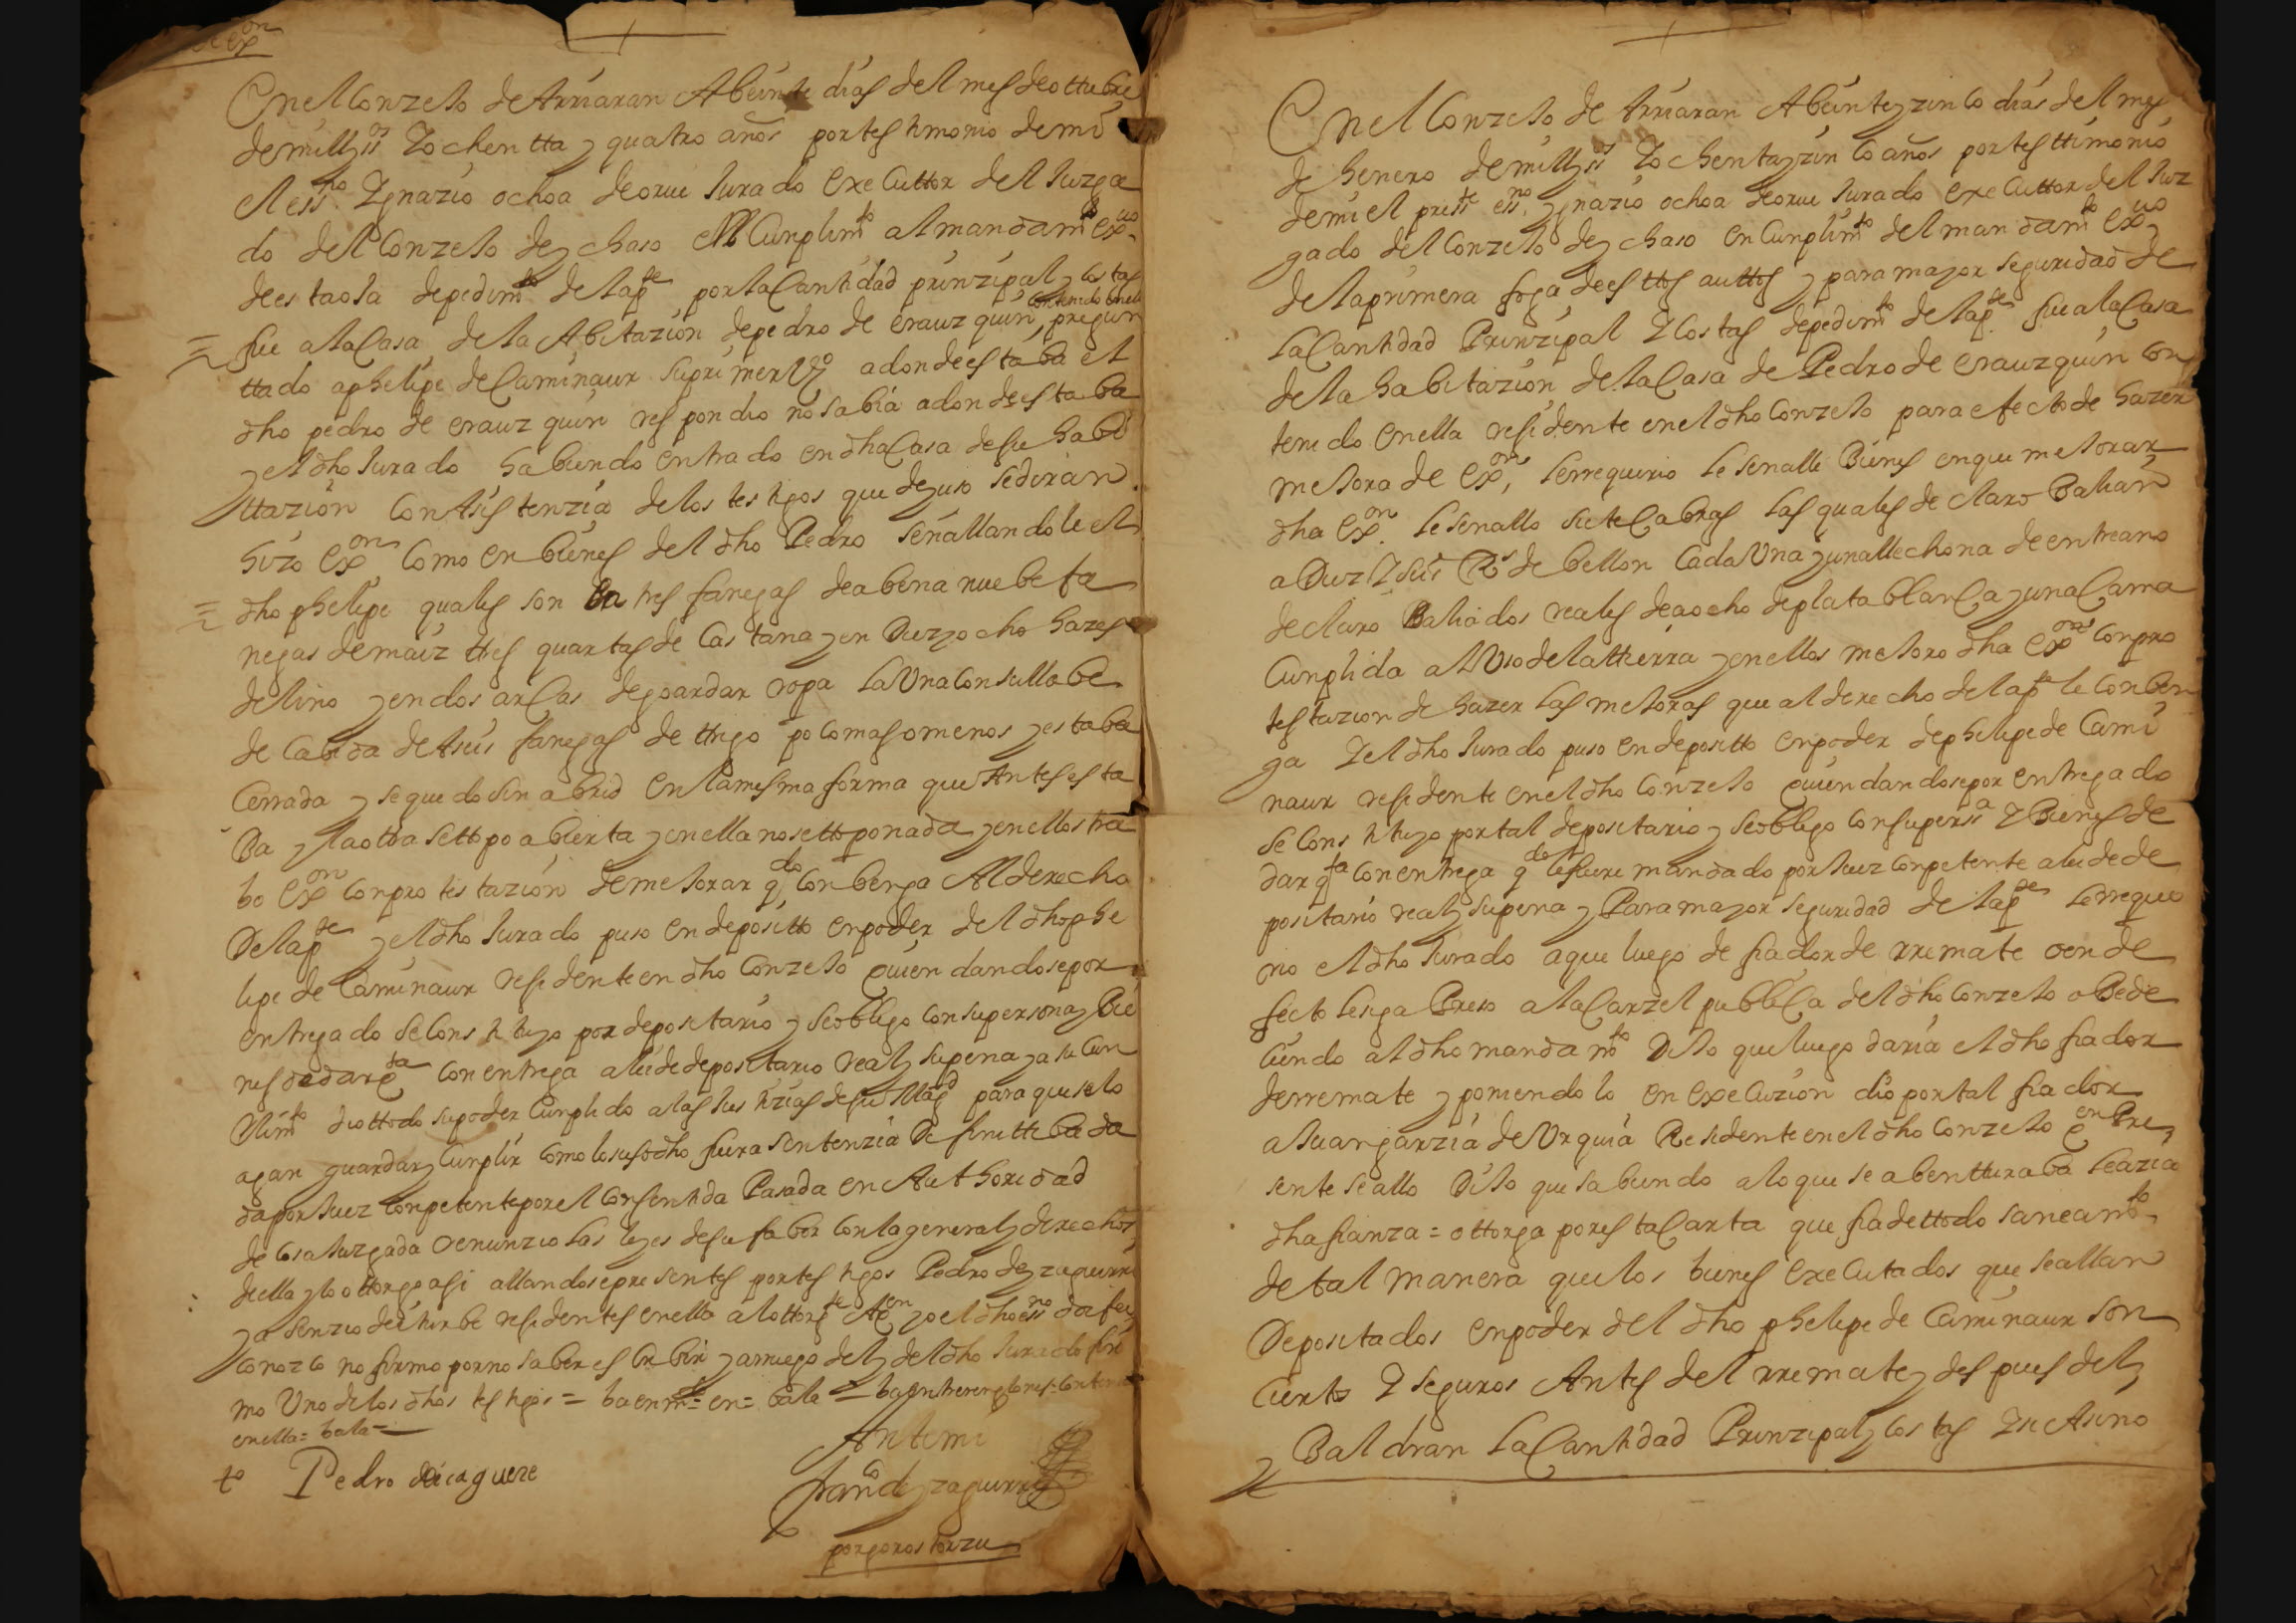 exon
+
En el Conzejo de Arriaran A beinte dias del mes de ottubre
de mill y ss.os Y ochentta y quatro años por testimonio de mi
el ess.no Ygnazio ochoa de orue Jurado executtor del Juzga
do del Conzejo de ychaso en Cunplim.to al mandam.to ex.uo
de esta oja de pedim.to de la p.te por la Cantidad prinzipal y costas
fue a la Casa de la Abitazion de pedro de erauzquin, contenido en ella pregun
ttado a phelipe de Caminaur su primer adonde estaba el
dho pedro de erauzquin respondio no sabia adonde estaba
y el dho Jurado habiendo entrado en dha Casa de su habi
ttazion Con Asistenzia de los testigos que de yuso se diran
hizo ex.on Como en bienes del dho Pedro señallandole el
dho phelipe quales son tres fanegas de abena nuebe fa
negas de maiz ttres quartas de Castana y en Diez y ocho hazes
de lino y en dos arcas de goardar ropa la Una Con su llabe
de Cabida de A seis fanegas de ttrigo poco mas o menos y estaba
Cerrada y se quedo sin abrid en la mesma forma que Antes esta
Ba y la otra se ttopo abierta y en ella no se ttopo nada y en ellos tra
bo ex.on Con protestazion de mejorar q.do Conbenga Al derecho
De la p.te y el dho Jurado puso en depositto en poder del dho phe
lipe de Caminaur residente en dho Conzejo quien dandose por
entregado se Constituyo por depositario y se obligo Con su persona y Bie
nes de dar q.ta Con entrega a lei de depositario real y su pena y a su Cun
plim.to dio ttodo su poder Cunplido a las Justizias de su Mag.d para que se lo
agan guardar y Cunplir Como lo susodho fuera sentenzia Definittiba da
da por Juez Conpetente por el Consentida Pasada en Authoridad
de Cosa Juzgada renunzio las leyes de su fabor Con la general y derechos
de ella y lo ottorgo asi allandose presentes por testigos Pedro de yzaguirre
y Asenzio de residentes en ella a lottorg.te A q.en yo el dho ess.no doi fee
Conozco no firmo por no saber escribir y a rruego del y del dho Jurado fir
mo Uno de los dhos testigos = ba en = en = bala = ba entre renglones = Contenido
en ella = bala =
t.o Pedro
Ante mi
fran.co de yzaguirre

+
En el Conzejo de Arriaran A beinte y zinco dias del mes
de henero de mill y ss.os Y ochenta y zinco años por testtimonio
de mi el press.te ess.no ygnazio ochoa de orue Jurado executtor del Juz
gado del Conzejo de ychaso en Cunplim.to del mandam.to ex.uo
de la primera foja de esttos auttos y para mayor seguridad de
la Cantidad Prinzipal Y Costas de pedim.to de la p.te fue a la Casa
de la habitazion de la Casa de Pedro de erauzquin Con
tenido en ella residente en el dho Conzejo para efecto de hazer
mejora de ex.on, le rrequirio le senalle Bienes en que mejorar
dha ex.on le senallo siete Cabras las quales declaro Balian
a Diez Y seis R.s de bellon Cada Una y una llechona de entreaño
declaro Balia dos reales de a ocho de plata blanca y una Cama
Cunplida al Uso de la ttierra y en ellos mejoro dha ex.on Con pro
testazion de hazer las mejoras que al derecho de la p.te le Conben
ga Y el dho Jurado puso en depositto en poder de phelipe de Cami
naur residente en el dho Conzejo quien dandose por entregado
se Constituyo por tal depositario y se obligo Con su perss.a Y Bienes de
dar q.ta Con entrega q.do le fuere mandado por Juez Conpetente a lei de de
positario real y su pena y Para mayor seguridad de la p.te le rreque
rio el dho Jurado a que luego de fiador de rremate o en de
fecto le siga Preso a la Carzel publica del dho Conzejo obede
ciendo al dho mandam.to Dijo que luego daria el dho fiador
de rremate y poniendolo en execuzion dio por tal fiador
a Juan garzia de Urquia Residente en el dho Conzejo q.en Pre
sente se allo Dijo que sabiendo a lo que se abentturaba le azia
dha fianza = ottorga por esta Carta que fia de ttodo saneam.to
de tal manera que los bienes executados que se allan
Depositados en poder del dho phelipe de Caminaur son
Ciertos Y seguros Antes del rremate y despues del y
y Baldran la Cantidad Prinzipal y Costas Y si Asi no